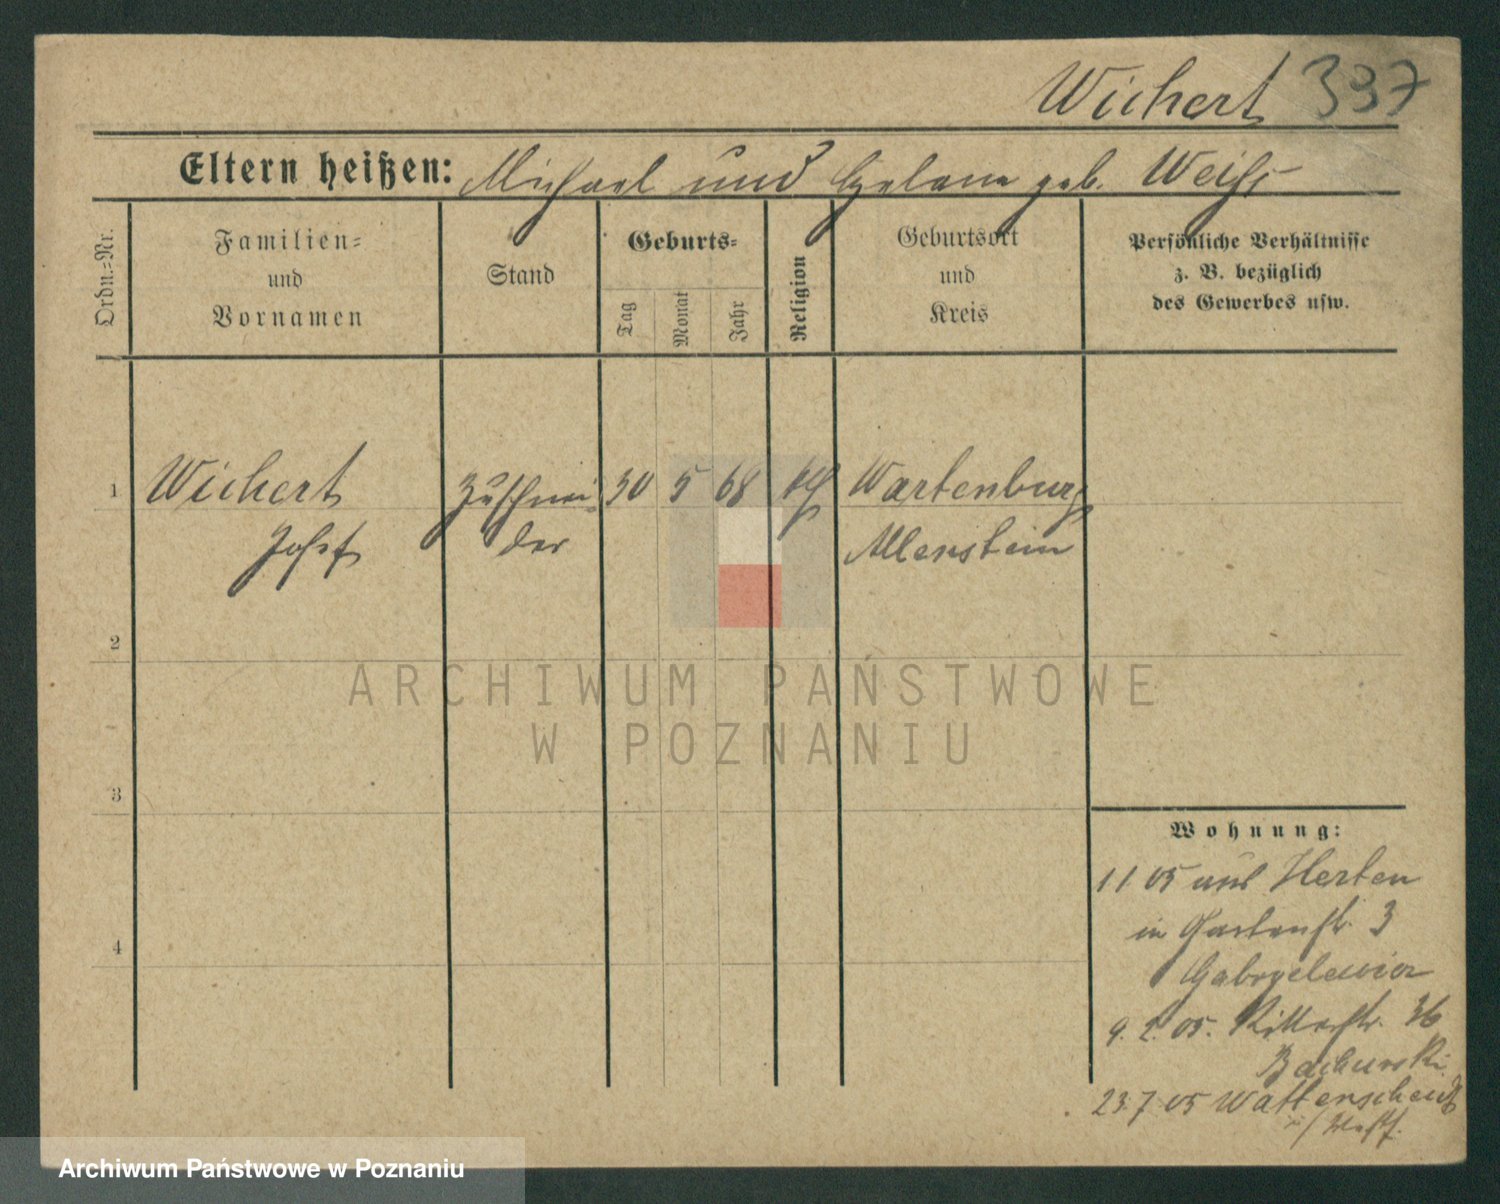 Wichert 397
Eltern heißen: Michael und Helene geb. Weiß
Ordn.-Nr.
Familien-
und
Vornamen
Stand
Geburts-
Tag
Monat
Jahr
Religion
Geburtsort
und
Kreis
Persönliche Verhältnisse
z. B. bezüglich
des Gewerbes usw.
1 Wichert Zuschnei- 30 5 68 kth Wartenburg
Josef der Allenstein
2
3
4
ARCHIWUM PAŃSTWOWE
W POZNANIU
Wohnung:
1 1 05 aus Herten
in Gartenstr. 3
9. 2. 05. Ritterstr. 36
23.7 05 Wattenscheid
i/Westf.
Archiwum Państwowe w Poznaniu